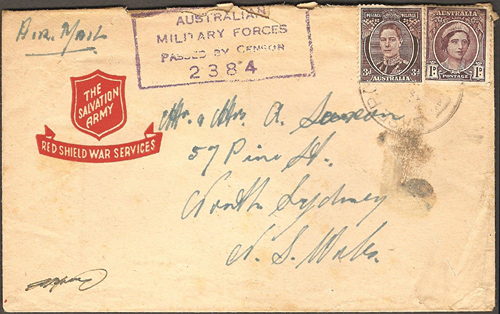 Air Mail
AUSTRALIAN
MILITARY FORCES
PASSED BY CENSOR
2384
POSTAGE
3D 3D
AUSTRALIA
AUSTRALIA
1D 1D
POSTAGE
THE
SALVATION
ARMY
RED SHIELD WAR SERVICES
Mr. & Mrs. A.
57 Pine St.
North Sydney
N. S. Wales.